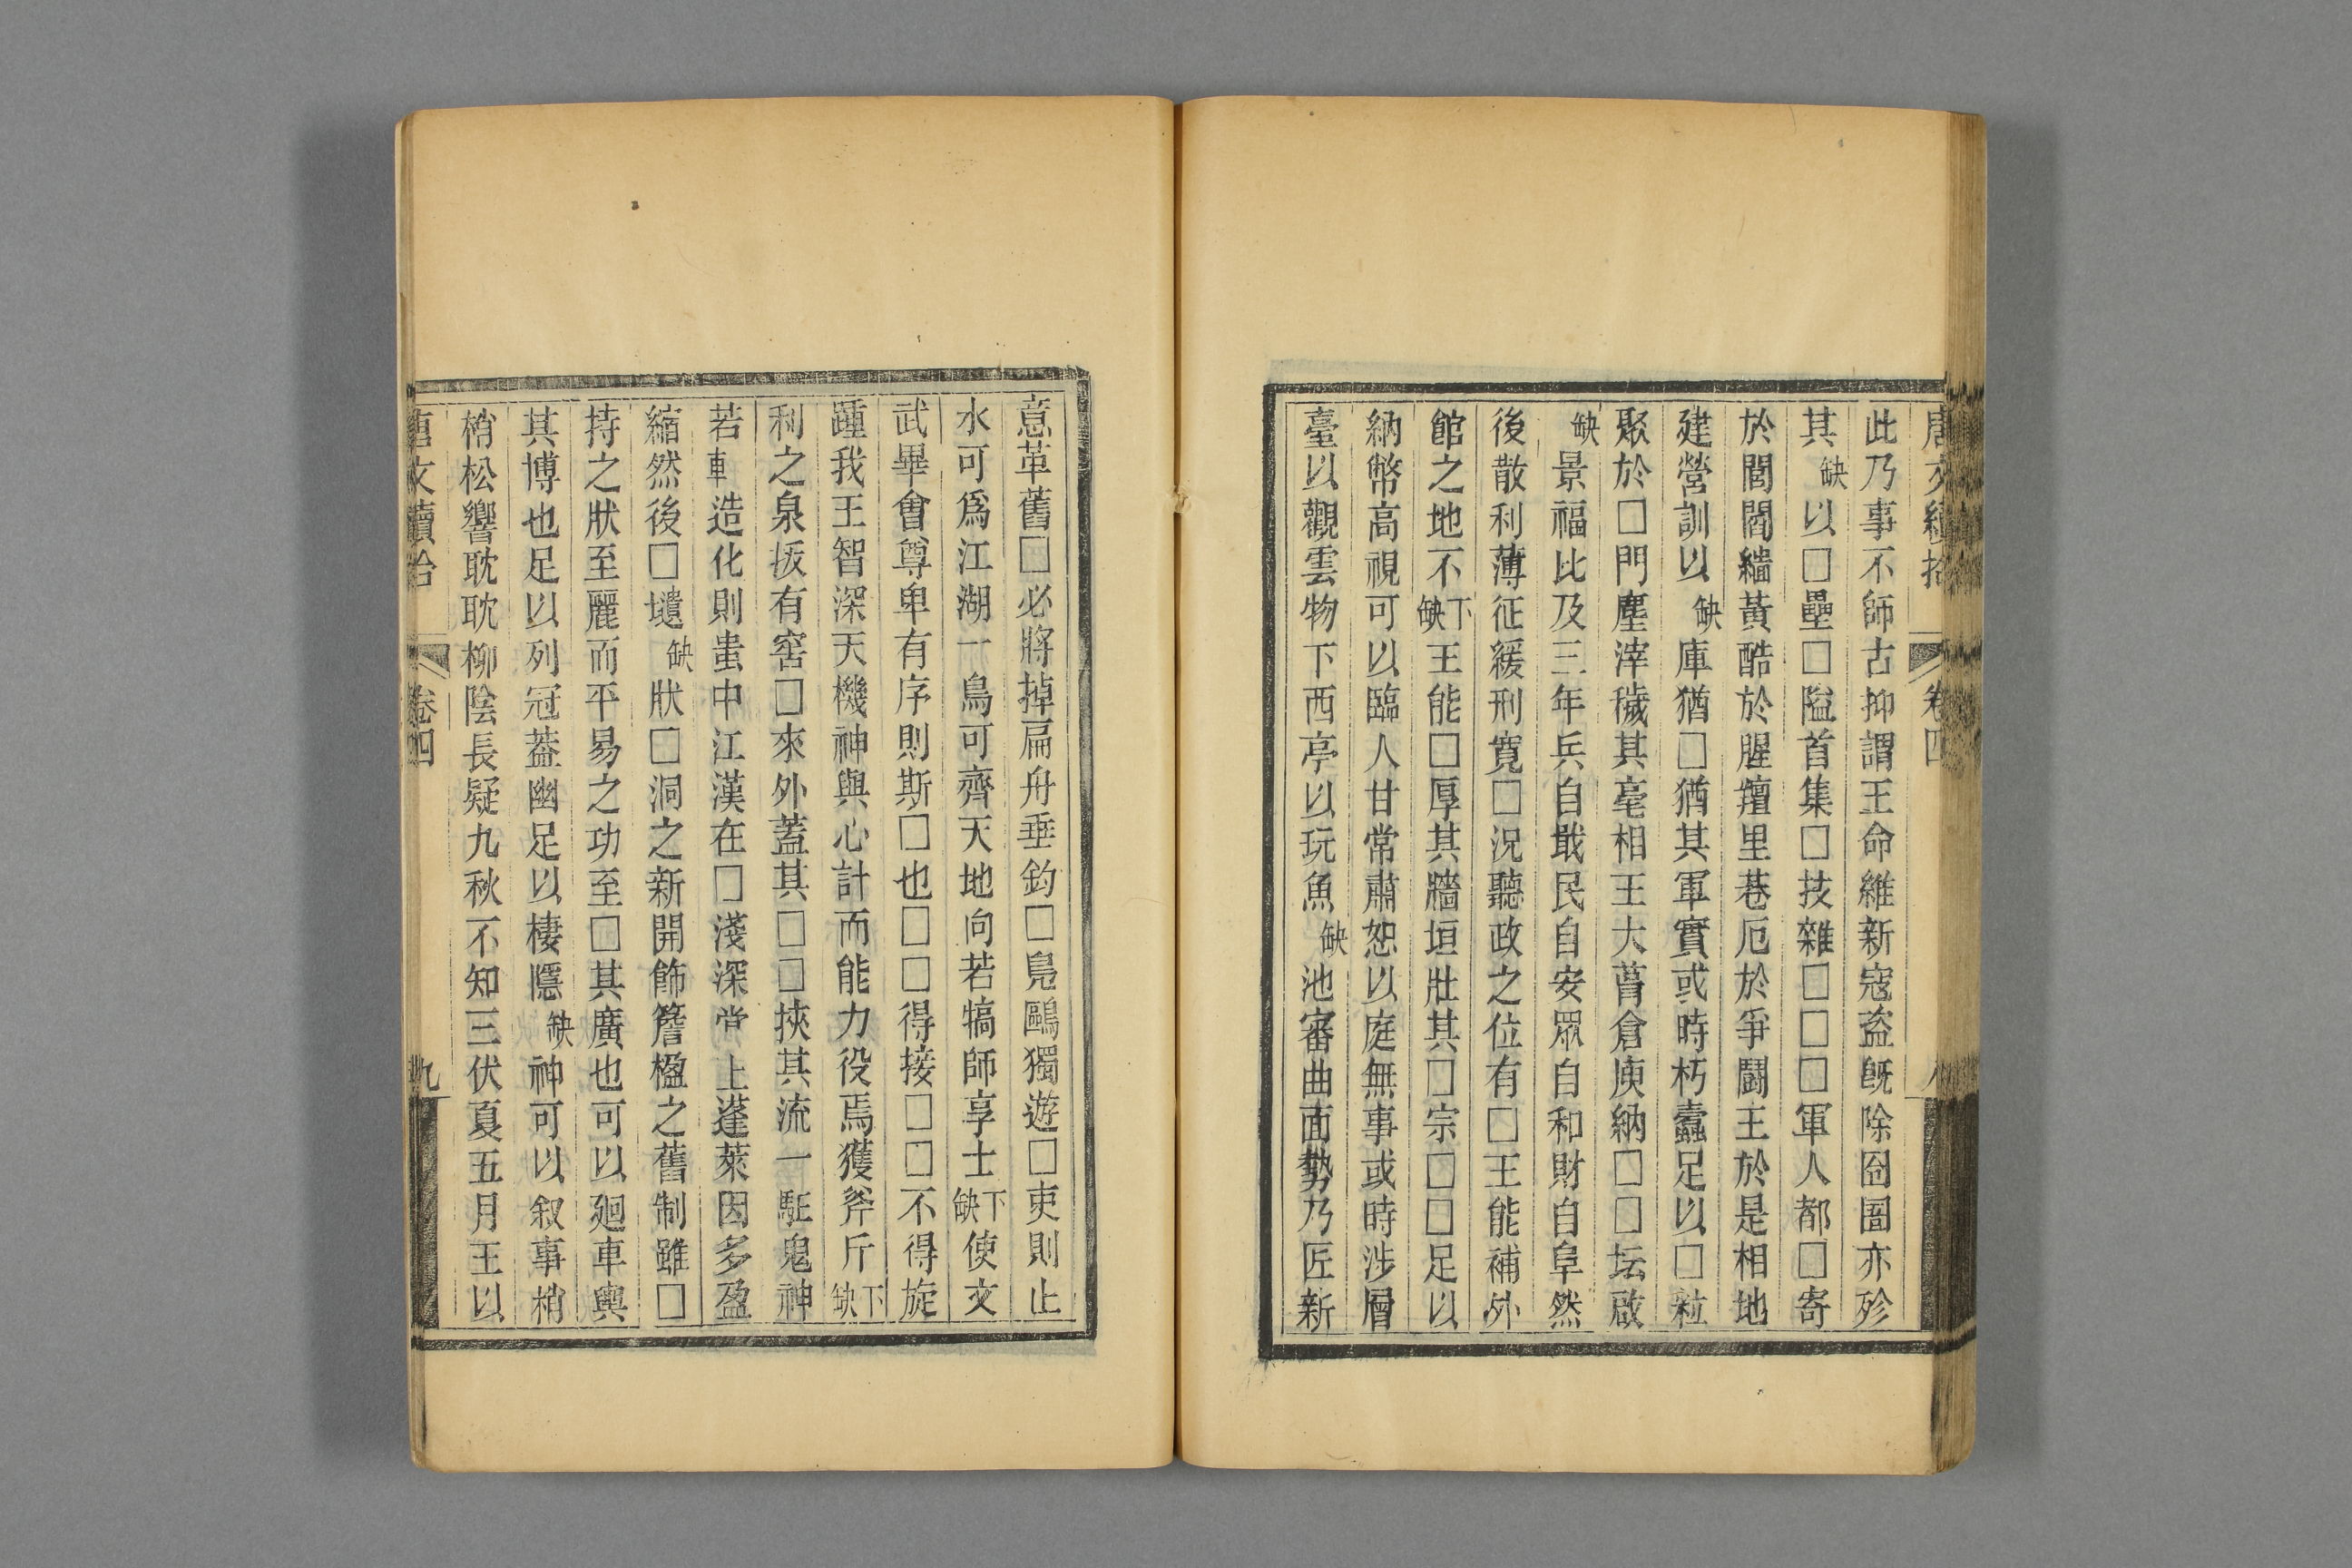 唐文續拾 卷四 八
此乃事不師古抑謂王命維新寇盜旣除囹圄亦殄
其缺以□壘□隘首集□技雜□□□軍人都□寄
於閭閻繣黃酷於腥羶里巷厄於爭鬬王於是相地
建營訓以缺庫猶□猶其軍實或時朽蠹足以□粒
聚於□門塵滓穢其亳相王大蒷倉庾納□□坛啟
缺景福比及三年兵自戢民自安眾自和財自阜然
後散利薄征緩刑寬□況聽政之位有□王能補外
館之地不下缺王能□厚其牆垣壯其□宗□□足以
納幣高視可以臨人甘常肅恕以庭無事或時涉層
臺以觀雲物下西亭以玩魚缺池審曲面勢乃匠新
意革舊□必將掉扁舟垂釣□鳧鷗獨遊□叓則止
水可爲江湖一鳥可齊天地向若犒師享士下缺使文
武畢會尊卑有序則斯□也□□得接□□不得旋
踵我王智深天機神與心計而能力役焉獲斧斤下缺
利之泉扳有窖□來外蓋其□□挾其流一駐鬼神
若車造化則蚩中江漢在□淺深當上蓬萊因多盈
縮然後□壝缺狀□洞之新開飾簷楹之舊制雖□
持之狀至麗而平易之功至□其廣也可以廻車輿
其博也足以列冠葢幽足以棲隱缺神可以叙事梢
梢松響耽耽柳陰長疑九秋不知三伏夏五月王以
唐文續拾 卷四 九